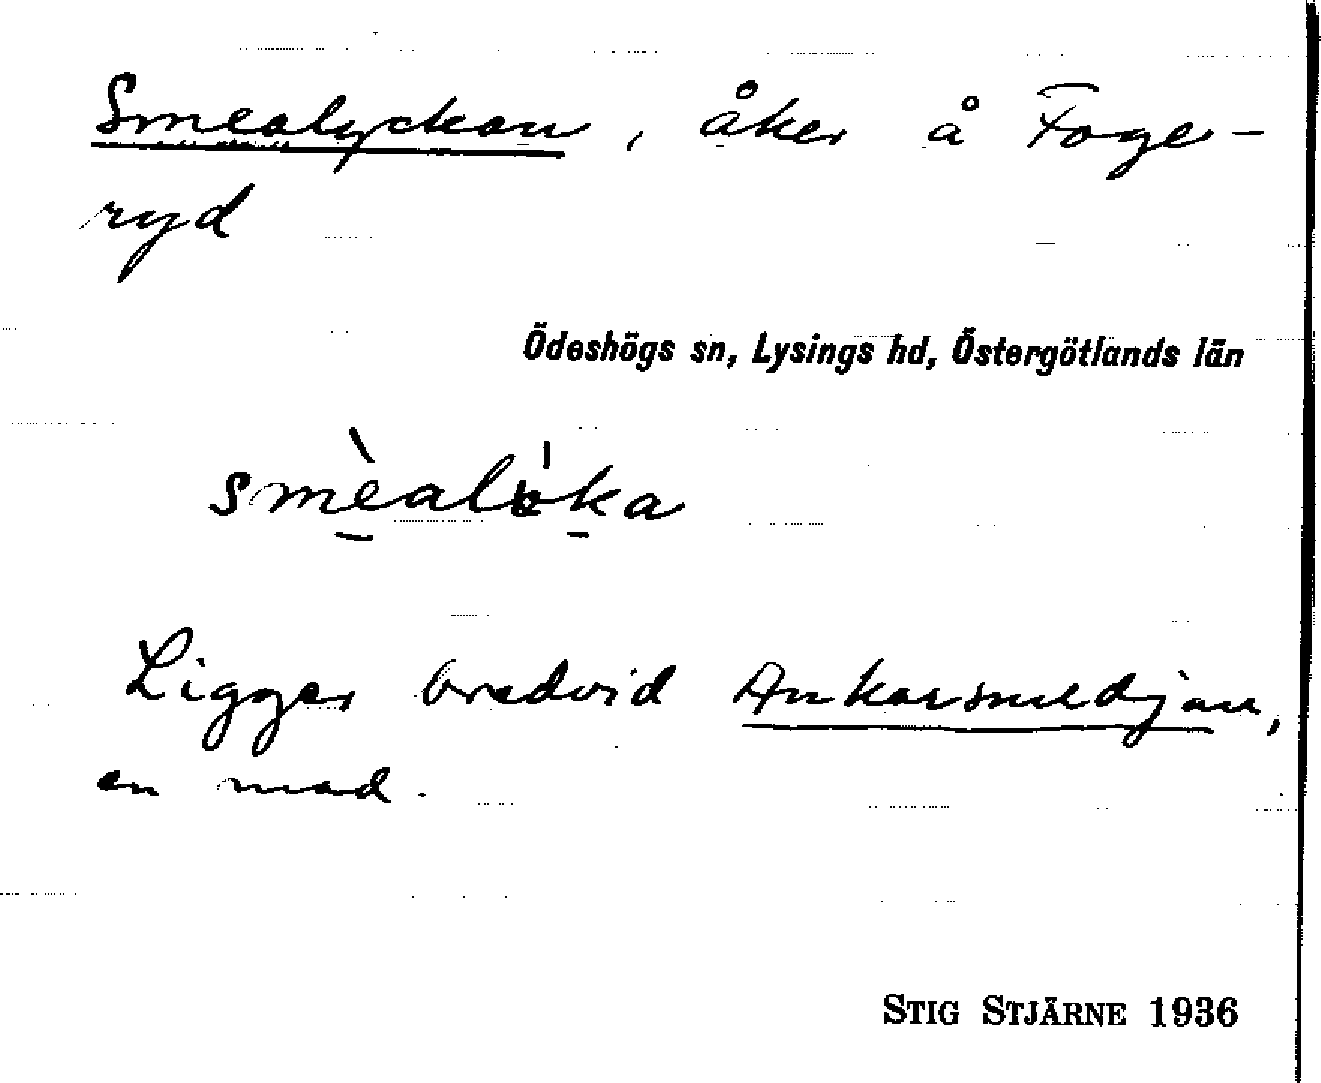 Smealyckan, åker å Foge-
ryd
Ödeshögs sn, Lysings hd, Östergötlands län
smèalöka
Ligger bredvid Ankarsmedjan,
en mad.
STIG STJÄRNE 1936